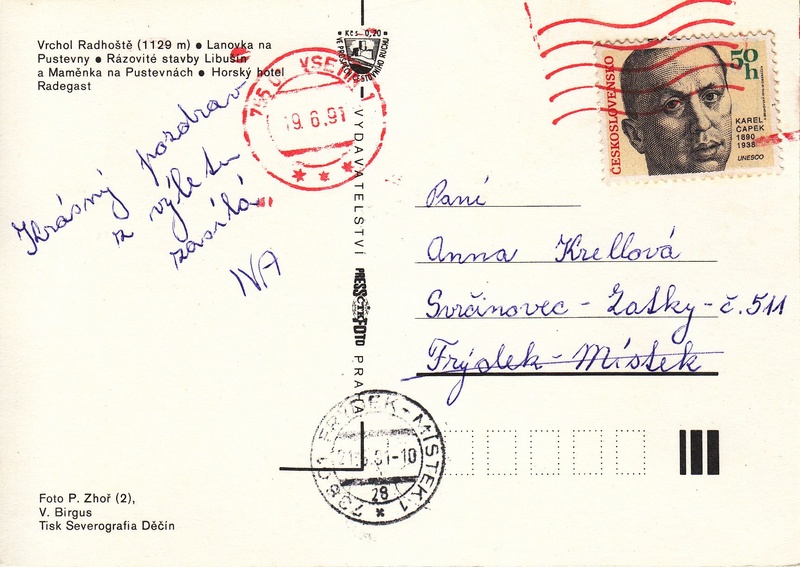 Vrchol Radhoště (1129 m) ● Lanovka na
Pustevny ● Rázovité stavby Libušín
a Maměnka na Pustevnách ● Horský hotel
Radegast
Krásný pozdrav
z výletu
zasílá
IVA
Foto P. Zhoř (2),
V. Birgus
Tisk Severografia Děčín
Kčs 0,20
VYDAVATELSTVÍ
PRESSFOTO
ČTK
PRAHA
VSETÍN 1
19.6.91
FRÝDEK-MÍSTEK 1
738 01
91-10
28
ČESKOSLOVENSKO
50
h
KAREL
ČAPEK
1890
1938
UNESCO
Paní
Anna Krellová
Svrčinovec - Zatky - č. 511
Frýdek - Místek